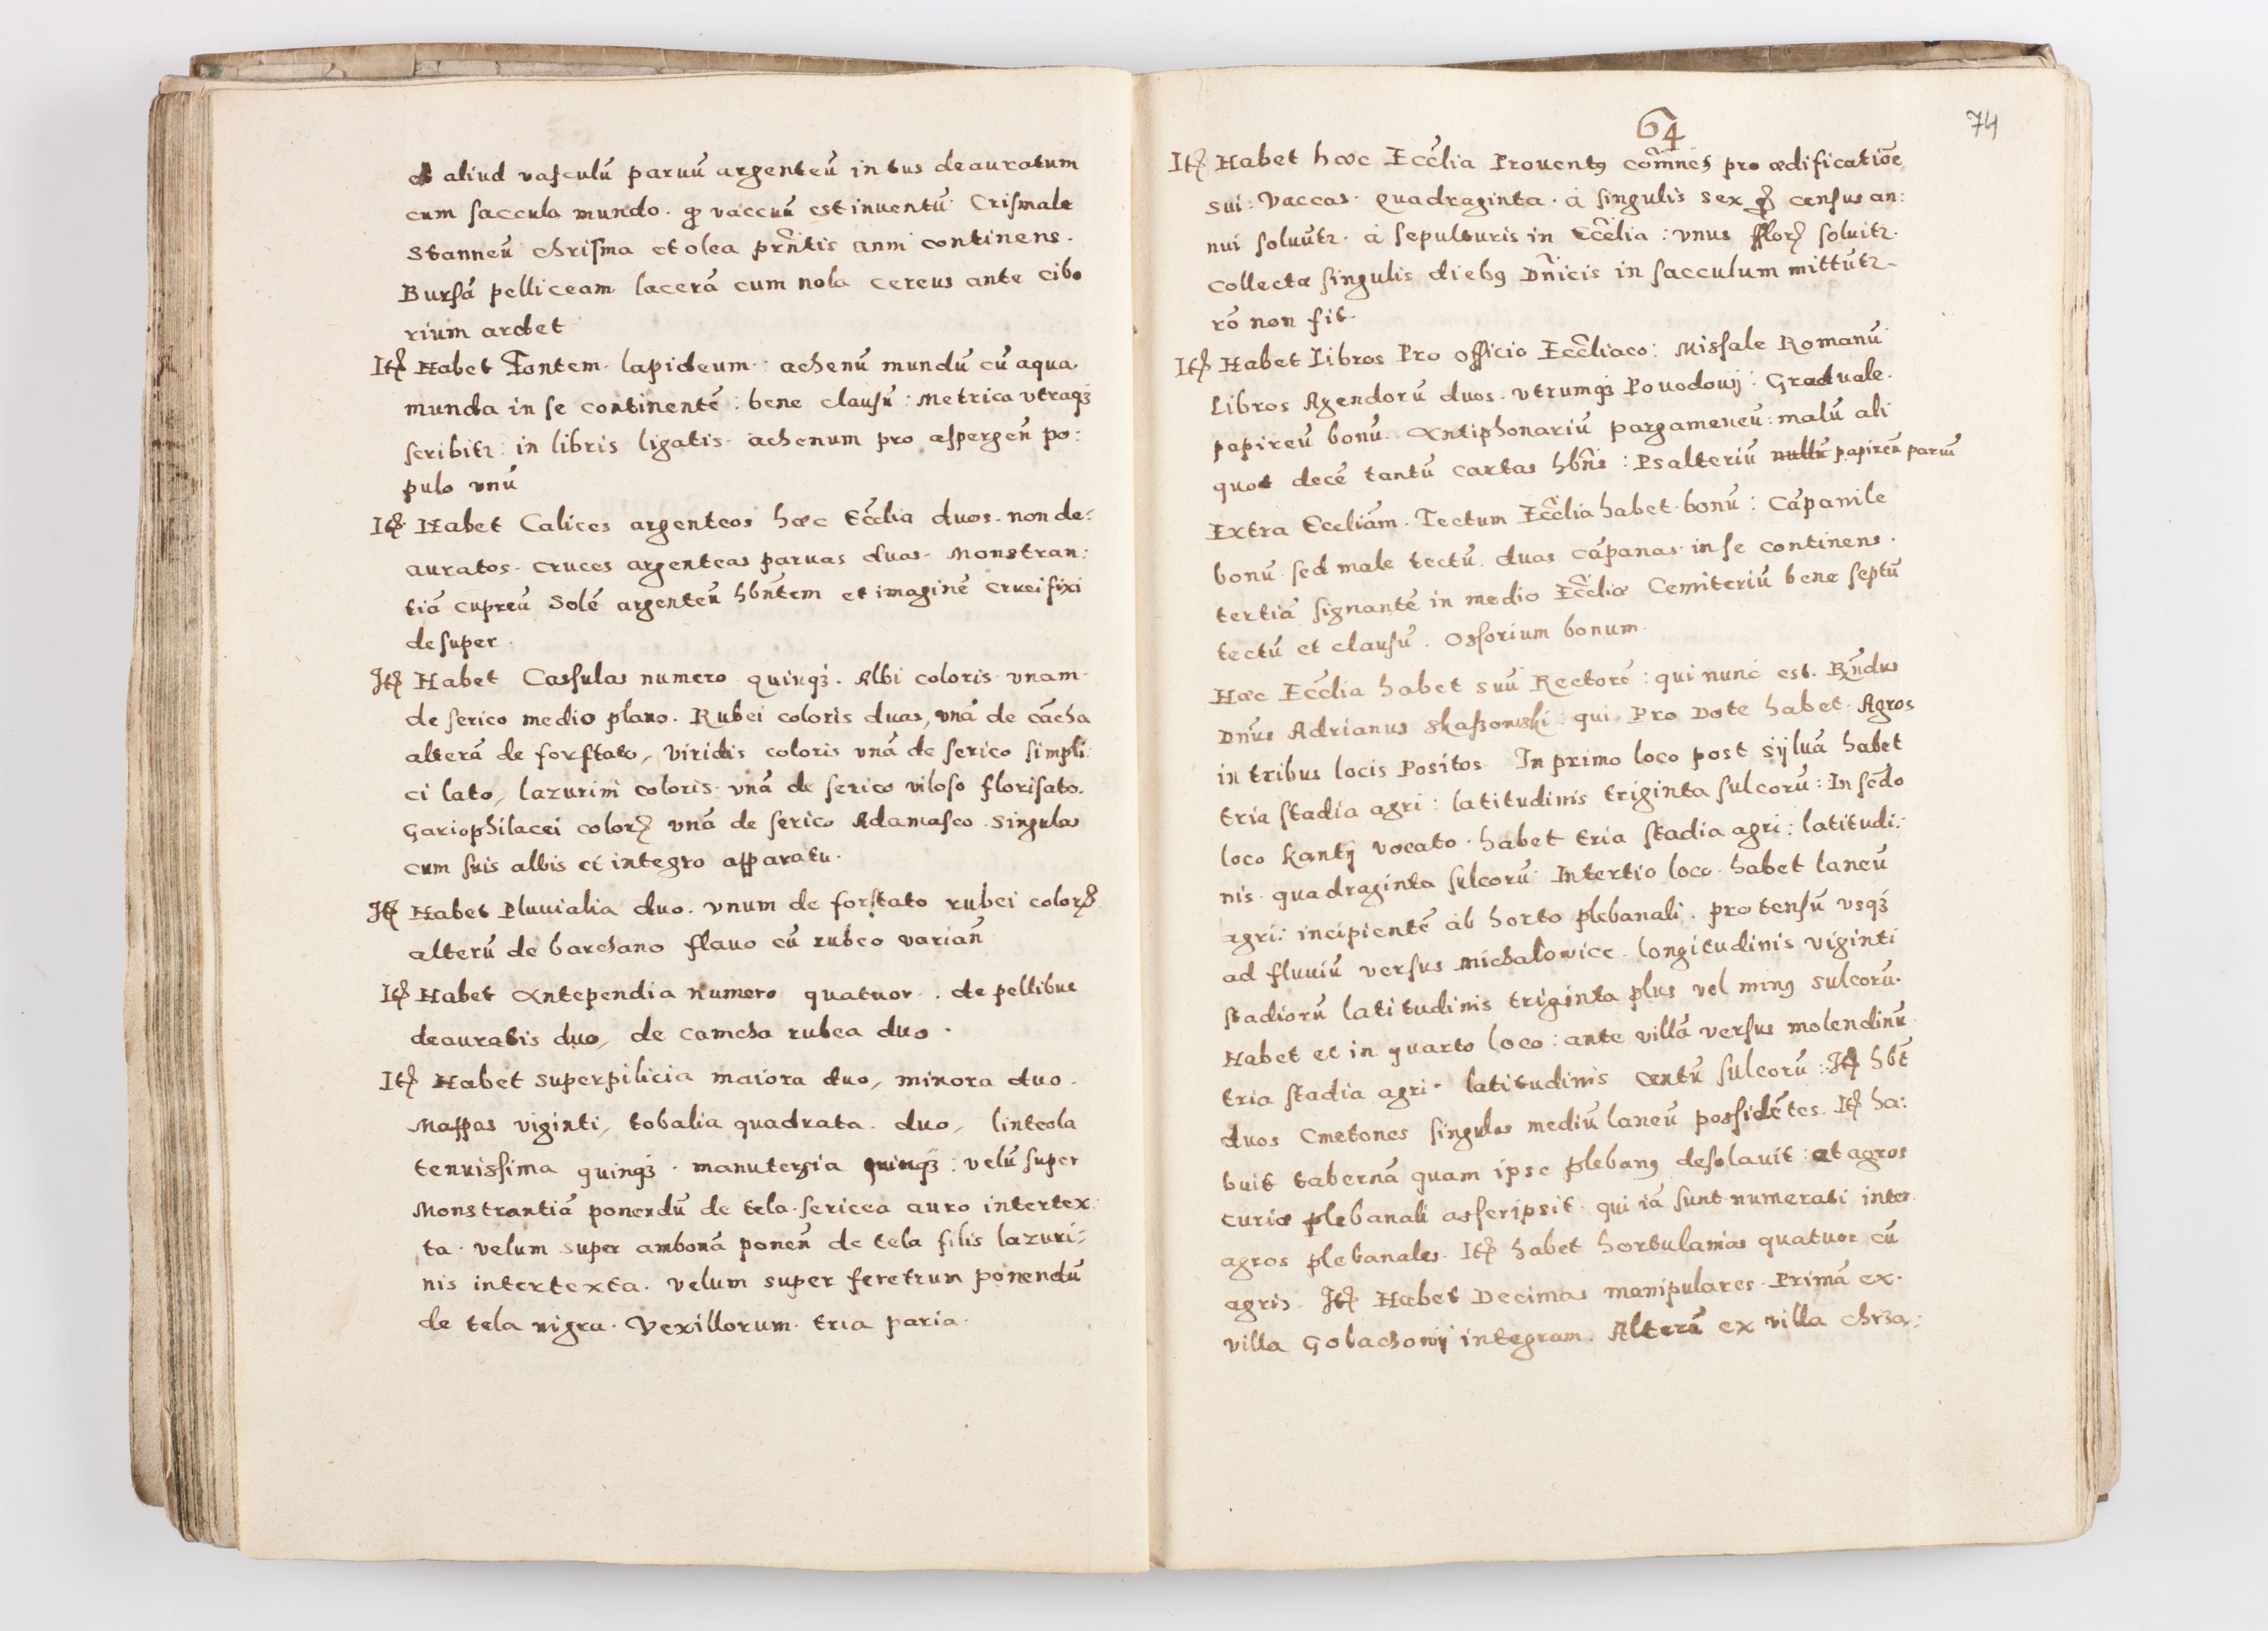 et aliud vasculū paruū argenteū intus deauratum
cum saccula mundo. ꝙ vaccuū est inuentū. Crismale
Stanneū chrisma et olea prn̄tis anni continens.
Bursā pelliceam lacerā cum nola cereus ante cibo
rium ardet
Itꝫ Habet Fontem lapideum: achenū mundū cū aqua
munda in se continentē: bene clausū: Metrica vtraqꝫ
scribitr: in libris ligatis achenum pro aspergen̄ po:
pulo vnū
Itꝫ Habet Calices argenteos hæc Eccl̄ia duos. non de:
auratos. cruces argenteas paruas duas. Monstran:
tiā cupreā Solē argenteū hbn̄tem et imaginē crucifixi
desuper.
Itꝫ Habet Casfulas numero quinqꝫ. Albi coloris vnam
de serico medio plano. Rubei coloris duas, vnā de cācha
alterā de forstato, viridis coloris vnā de serico simpli
ci lato, lazurini coloris vnā de serico viloso florisato.
Gariophilacei colorꝫ vnā de serico Adamasco. Singulas
cum suis albis et integro apparatu.
Itꝫ Habet Pluuialia duo. vnum de forstato rubei colorꝫ
alterū de barchano flauo cū rubeo varian̄
Itꝫ Habet Antependia numero quatuor. de pellibus
deauratis duo, de camcha rubea duo.
Itꝫ Habet superpilicia maiora duo, minora duo.
Mappas viginti, tobalia quadrata. duo, linteola
tenuissima quinqꝫ. manutergia quinqꝫ: velū super
Monstrantiā ponendū de tela sericea auro intertex:
ta. velum super ambonā ponen̄ de tela filis lazuri:
nis intertexta. velum super feretrum ponendū
de tela nigra. Vexillorum. tria paria.
64
74
Itꝫ Habet hæc Eccl̄ia Prouentꝰ com̄nes pro ædificatiōe
sui: Vaccas. quadraginta. à singulis sex gꝫ census an:
nui soluūtr. à sepulturis in Eccl̄ia: vnus fflorꝫ soluitr.
Collecta singulis diebꝰ Dn̄icis in sacculum mittūtr
rō non fit.
Itꝫ Habet Libros Pro officio Eccl̄iaco: Missale Romanū
Libros Agendorū duos. vtrumqꝫ Pouodouij: Graduale.
papireū bonū. Antiphonariū pargameneū: malū ali
quot decē tantū cartas hbn̄s: Psalteriū nullū papireū paruū
Extra Eccliām. Tectum Eccl̄ia habet bonū: Cāpanile
bonū sed male tectū. duas cāpanas in se continens.
tertiā signantē in medio Eccl̄iæ Cemiteriū bene septū
tectū et clausū. Ossorium bonum.
Hæc Eccl̄ia habet suū Rectorē: qui nunc est. Rn̄dus
Dn̄us Adrianus Skaszowski: qui Pro Dote habet Agros
in tribus locis Positos. In primo loco post syluā habet
tria stadia agri: latitudinis triginta sulcorū: In scdo
loco Kantij vocato. habet tria stadia agri: latitudi:
nis quadraginta sulcorū. In tertio loco habet laneū
agri: incipientē ab horto plebanali. protensū vsqꝫ
ad fluuiū versus Michalowice. longitudinis viginti
stadiorū latitudinis triginta plus vel minꝰ sulcorū.
Habet et in quarto loco: ante villā versus molendinū
tria stadia agri. latitudinis centū sulcorū: Itꝫ hbt̄
duos Cmetones singulos mediū laneū possidētes. Itꝫ ha:
buit tabernā quam ipse plebanꝰ desolauit: et agros
curiæ plebanali asscripsit. qui iā sunt numerati inter
agros plebanales. Itꝫ habet hortulanias quatuor cū
agris. Itꝫ Habet Decimas manipulares. Primā ex
villa Golachowij integram. Alterā ex villa chrza: